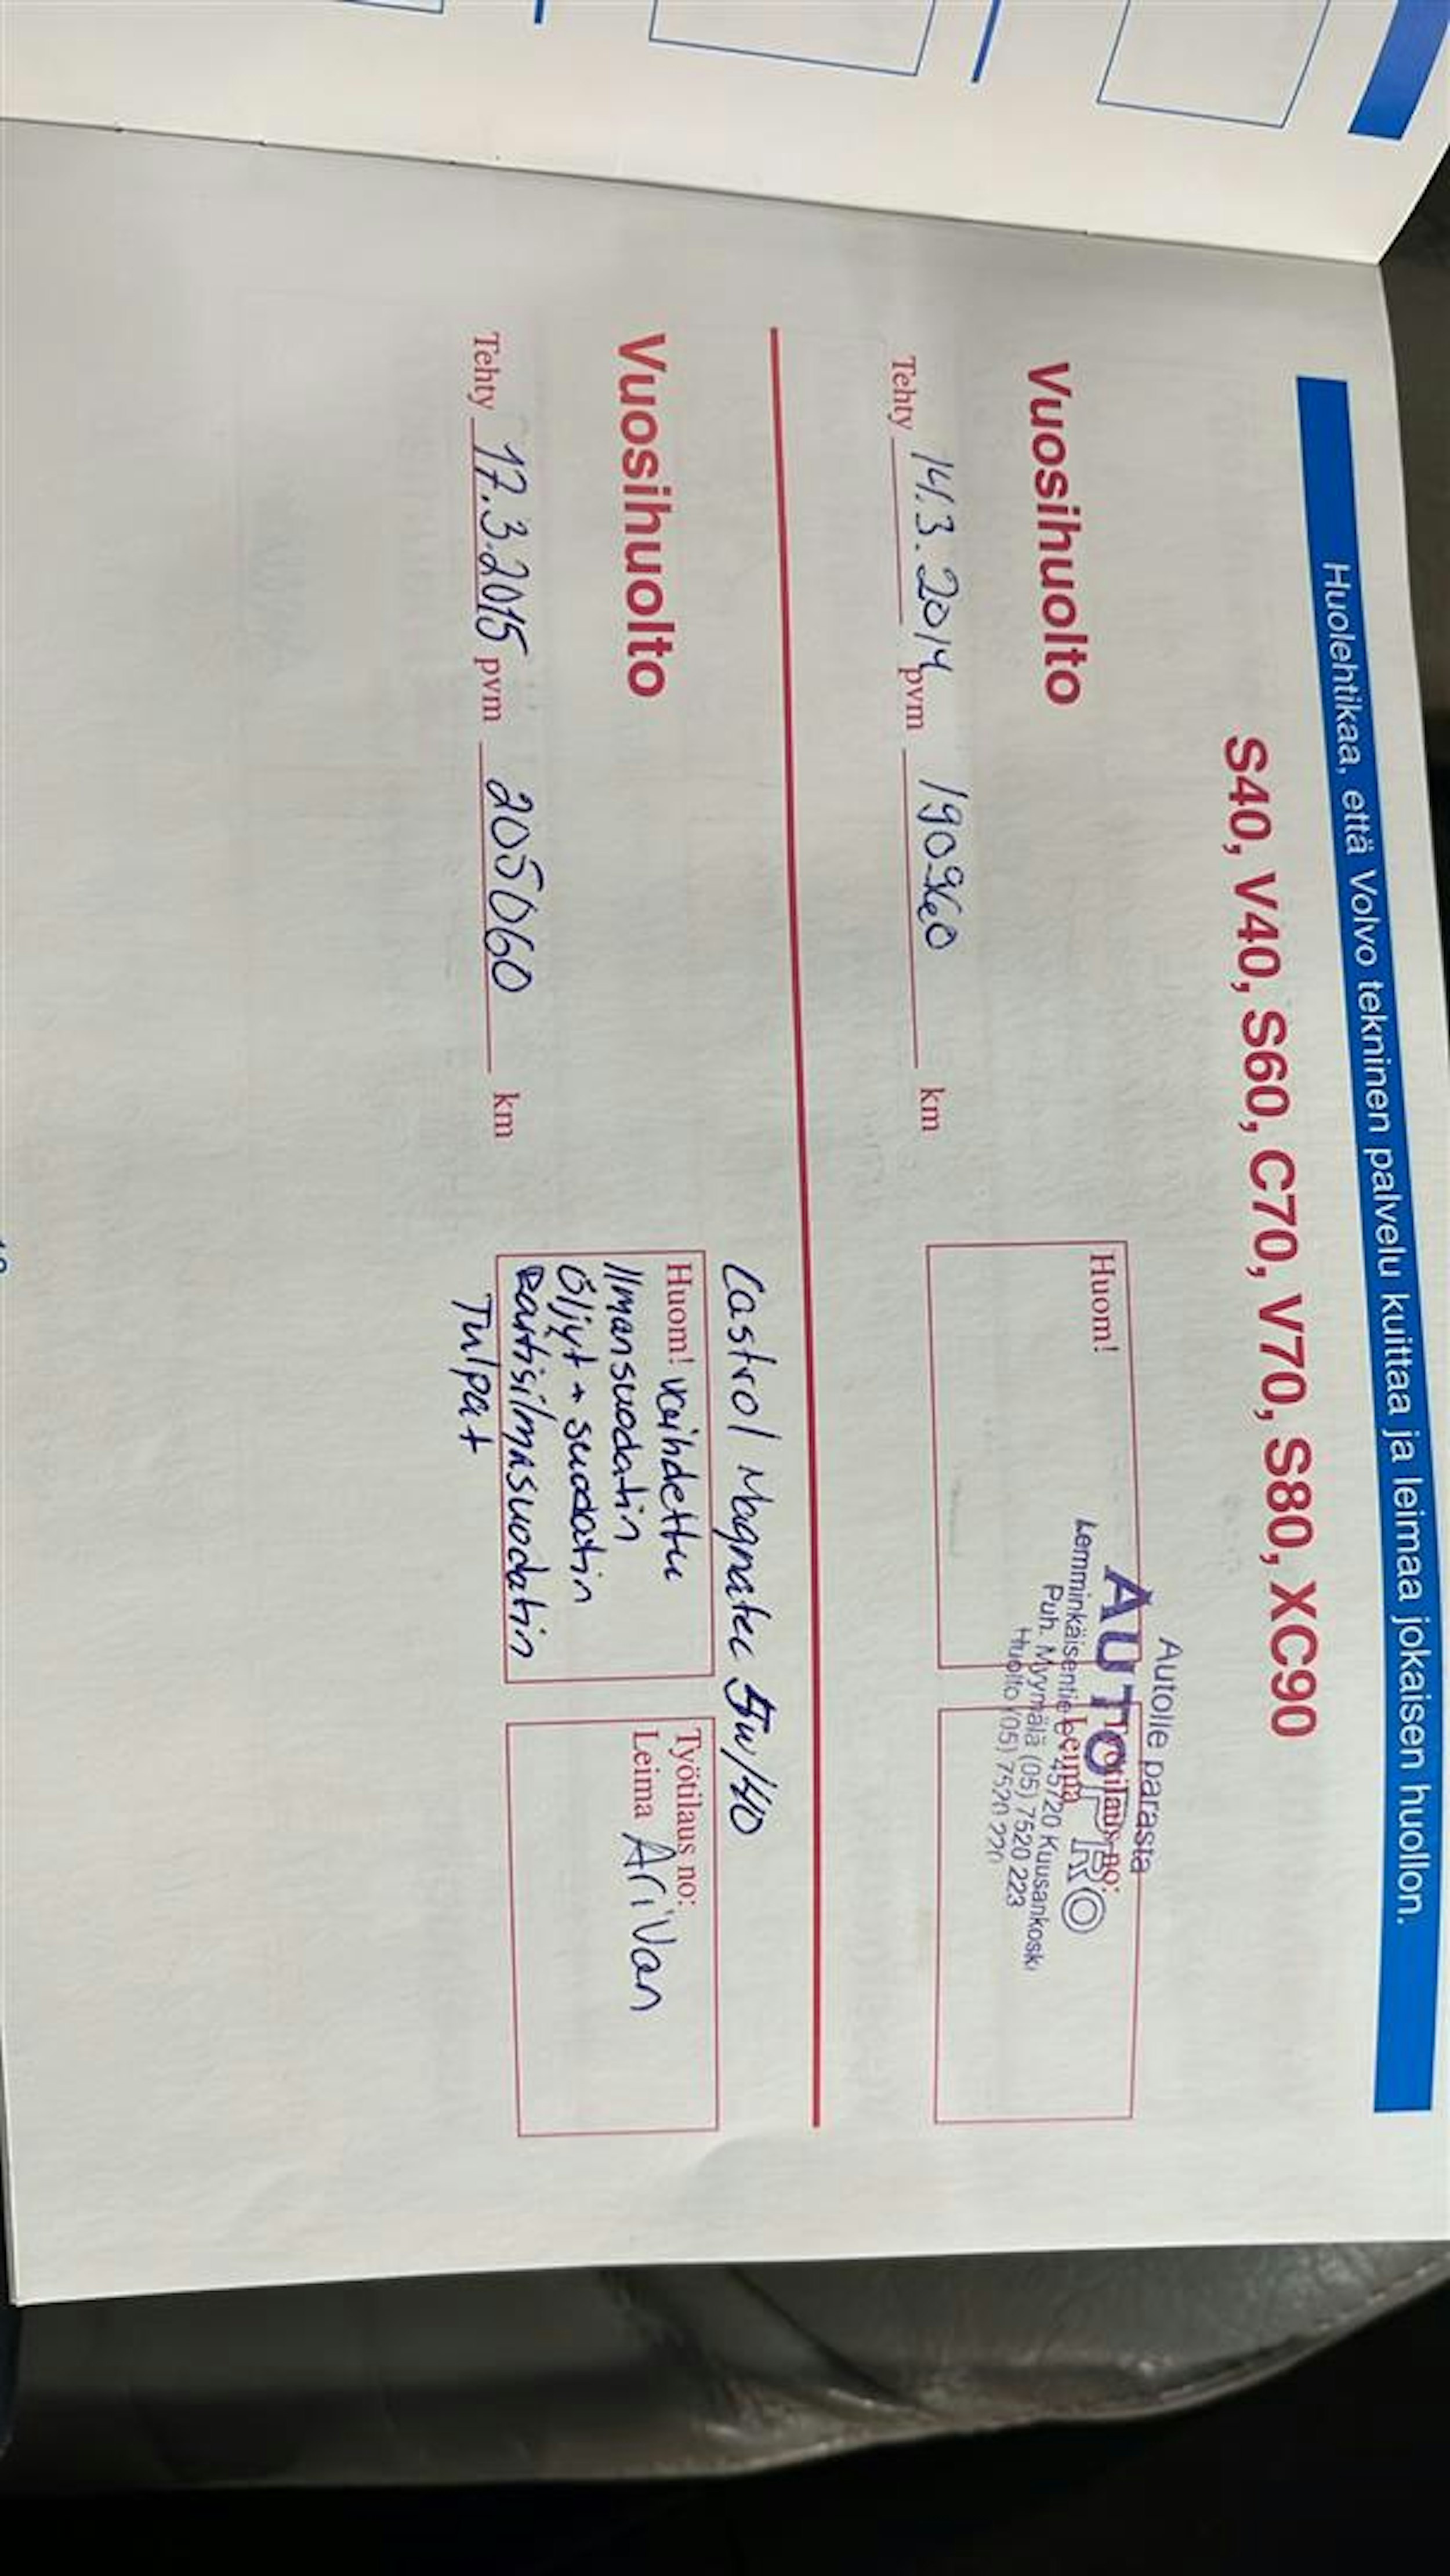 Huolehtikaa, että Volvo tekninen palvelu kuittaa ja leimaa jokaisen huollon.
S40, V40, S60, C70, V70, S80, XC90
Vuosihuolto
Tehty 14.3.2014 pvm 190960 km
Huom!
Työtilaus no:
Leima
Autolle parasta
AUTOPRO
Lemminkäisentie 45720 Kuusankoski
Puh. Myymälä (05) 7520 223
Huolto (05) 7520 220
Castrol Magnatec 5w/40
Vuosihuolto
Tehty 17.3.2015 pvm 205060 km
Huom! vaihdettu
Ilmansuodatin
Öljyt + suodatin
Raitisilmasuodatin
Tulpat
Työtilaus no:
Leima AriVan